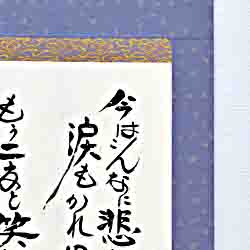 今はこんなに悲
涙もかれ
もう二度と笑